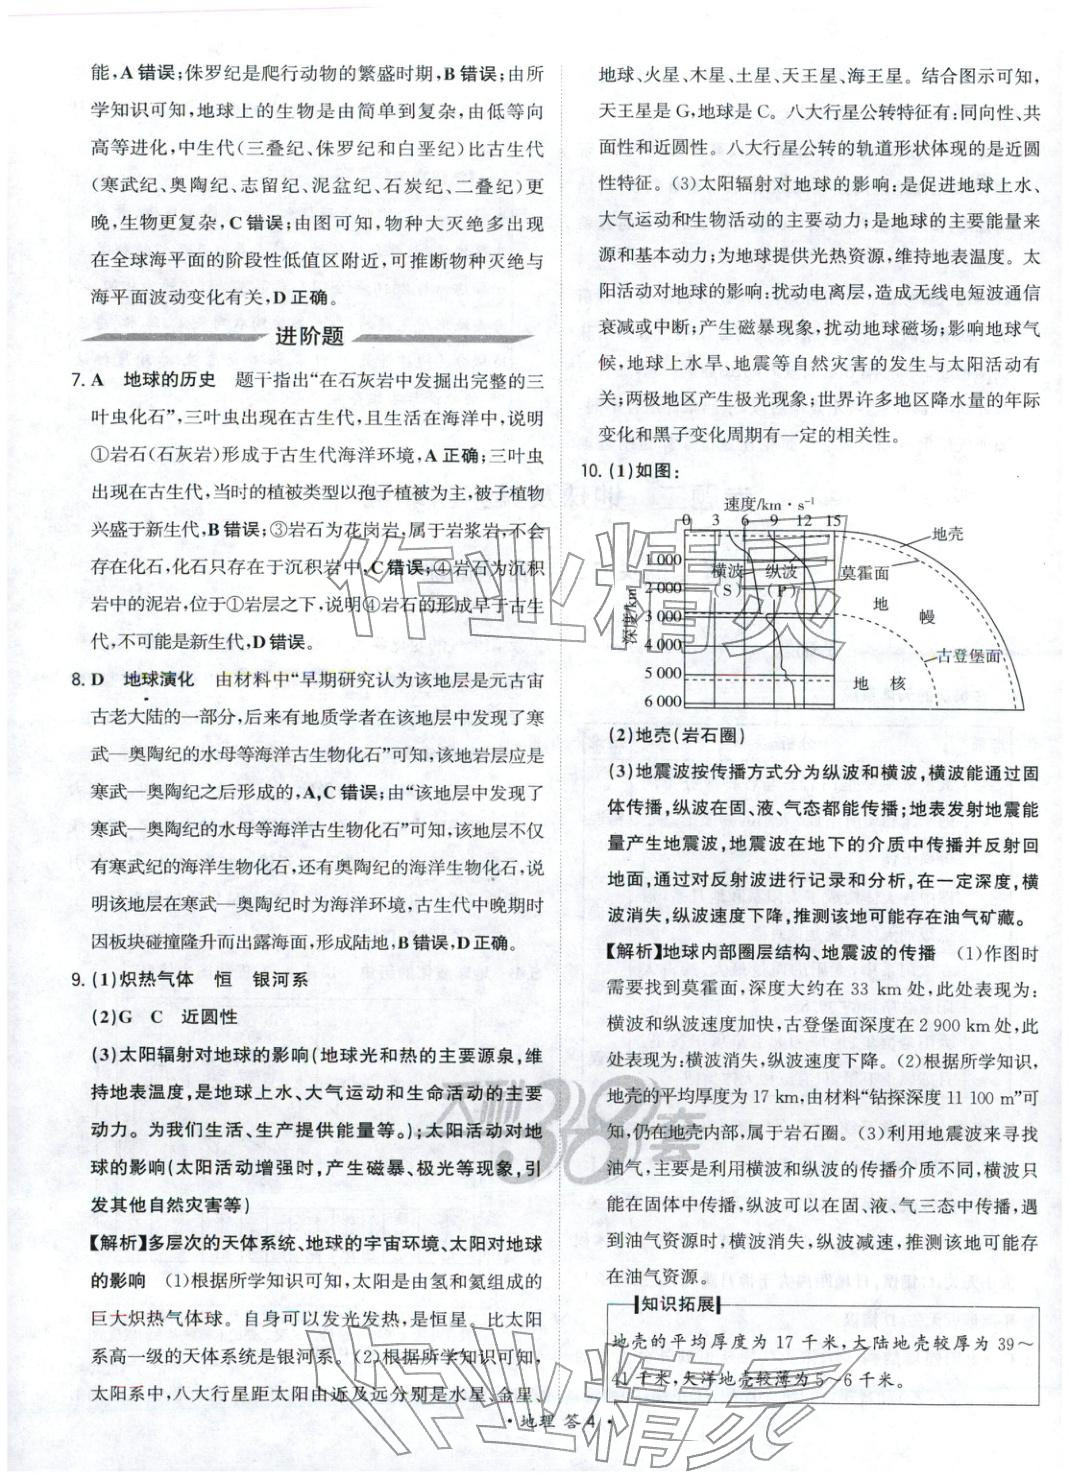 能,A错误;侏罗纪是爬行动物的繁盛时期,B错误;由所
学知识可知,地球上的生物是由简单到复杂,由低等向
高等进化,中生代(三叠纪、侏罗纪和白垩纪)比古生代
(寒武纪、奥陶纪、志留纪、泥盆纪、石炭纪、二叠纪)更
晚,生物更复杂,C错误;由图可知,物种大灭绝多出现
在全球海平面的阶段性低值区附近,可推断物种灭绝与
海平面波动变化有关,D正确。
进阶题
7. A 地球的历史 题干指出“在石灰岩中发掘出完整的三
叶虫化石”,三叶虫出现在古生代,且生活在海洋中,说明
①岩石(石灰岩)形成于古生代海洋环境,A正确;三叶虫
出现在古生代,当时的植被类型以孢子植被为主,被子植物
兴盛于新生代,B错误;③岩石为花岗岩,属于岩浆岩,不会
存在化石,化石只存在于沉积岩中,C错误;④岩石为沉积
岩中的泥岩,位于①岩层之下,说明④岩石的形成早于古生
代,不可能是新生代,D错误。
8. D 地球演化 由材料中“早期研究认为该地层是元古宙
古老大陆的一部分,后来有地质学者在该地层中发现了寒
武—奥陶纪的水母等海洋古生物化石”可知,该地岩层应是
寒武—奥陶纪之后形成的,A,C错误;由“该地层中发现了
寒武—奥陶纪的水母等海洋古生物化石”可知,该地层不仅
有寒武纪的海洋生物化石,还有奥陶纪的海洋生物化石,说
明该地层在寒武—奥陶纪时为海洋环境,古生代中晚期时
因板块碰撞隆升而出露海面,形成陆地,B错误,D正确。
9. (1)炽热气体 恒 银河系
(2)G C 近圆性
(3)太阳辐射对地球的影响(地球光和热的主要源泉,维
持地表温度,是地球上水、大气运动和生命活动的主要
动力。为我们生活、生产提供能量等。);太阳活动对地
球的影响(太阳活动增强时,产生磁暴、极光等现象,引
发其他自然灾害等)
【解析】多层次的天体系统、地球的宇宙环境、太阳对地球
的影响 (1)根据所学知识可知,太阳是由氢和氦组成的
巨大炽热气体球。自身可以发光发热,是恒星。比太阳
系高一级的天体系统是银河系。(2)根据所学知识可知,
太阳系中,八大行星距太阳由近及远分别是水星、金星、
地球、火星、木星、土星、天王星、海王星。结合图示可知,
天王星是G,地球是C。八大行星公转特征有:同向性、共
面性和近圆性。八大行星公转的轨道形状体现的是近圆
性特征。(3)太阳辐射对地球的影响:是促进地球上水、
大气运动和生物活动的主要动力;是地球的主要能量来
源和基本动力;为地球提供光热资源,维持地表温度。太
阳活动对地球的影响:扰动电离层,造成无线电短波通信
衰减或中断;产生磁暴现象,扰动地球磁场;影响地球气
候,地球上水旱、地震等自然灾害的发生与太阳活动有
关;两极地区产生极光现象;世界许多地区降水量的年际
变化和黑子变化周期有一定的相关性。
10. (1)如图:
速度/km·s⁻¹
0 3 6 9 12 15
地壳
1 000
横波 纵波
莫霍面
2 000
(S) (P)
地
3 000
幔
深度/km
4 000
古登堡面
5 000
地 核
6 000
(2)地壳(岩石圈)
(3)地震波按传播方式分为纵波和横波,横波能通过固
体传播,纵波在固、液、气态都能传播;地表发射地震能
量产生地震波,地震波在地下的介质中传播并反射回
地面,通过对反射波进行记录和分析,在一定深度,横
波消失,纵波速度下降,推测该地可能存在油气矿藏。
【解析】地球内部圈层结构、地震波的传播 (1)作图时
需要找到莫霍面,深度大约在 33 km处,此处表现为:
横波和纵波速度加快,古登堡面深度在2 900 km处,此
处表现为:横波消失,纵波速度下降。(2)根据所学知识,
地壳的平均厚度为17 km,由材料“钻探深度11 100 m”可
知,仍在地壳内部,属于岩石圈。(3)利用地震波来寻找
油气,主要是利用横波和纵波的传播介质不同,横波只
能在固体中传播,纵波可以在固、液、气三态中传播,遇
到油气资源时,横波消失,纵波减速,推测该地可能存
在油气资源。
知识拓展
地壳的平均厚度为17千米,大陆地壳较厚为39～
41千米,大洋地壳较薄为5～6千米。
·地理 答4·
作业精灵
天利38套
作业精灵